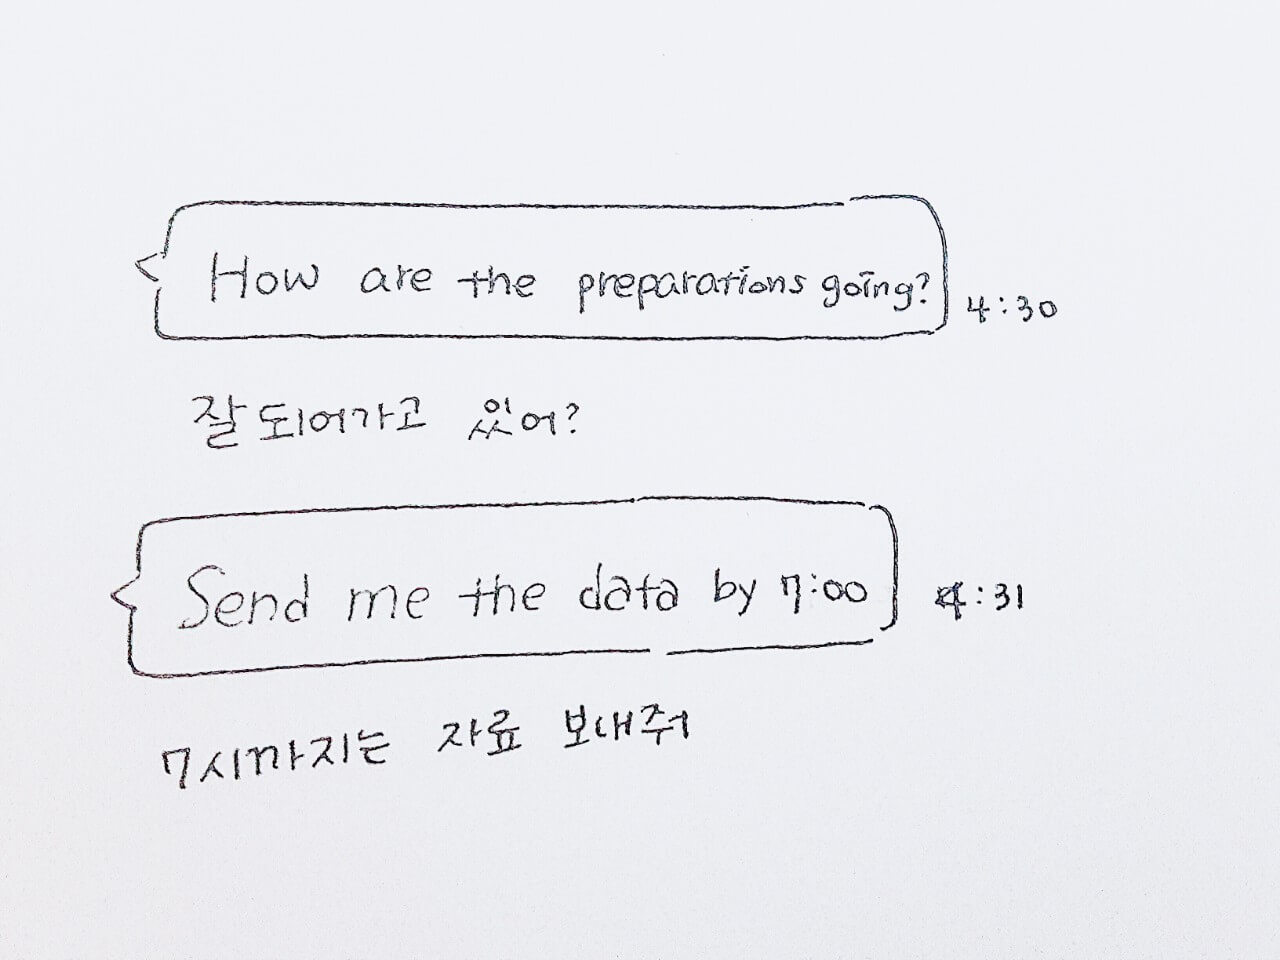 How are the preparations going? 4:30
잘되어가고 있어?
Send me the data by 7:00 4:31
7시까지는 자료 보내줘